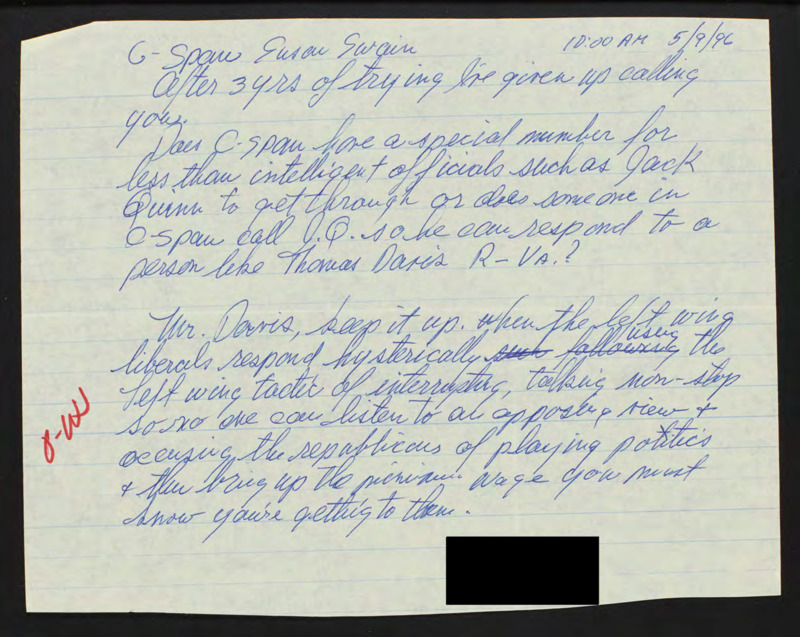 C-Span Susan Swain 10:00 AM 5/9/96
After 3 yrs of trying I've given up calling
you.
Does C-span have a special number for
less than intelligent officials such as Jack
Quinn to get through or does someone in
C span call J.Q. so he can respond to a
person like Thomas Davis R-VA.?
Mr. Davis, keep it up. When the left wing
liberals respond hysterically such following using the
left wing tactic of interrupting, talking non-stop
so no one can listen to an opposing view +
accusing the republicans of playing politics
+ then bring up the minimum wage you must
know you're getting to them.